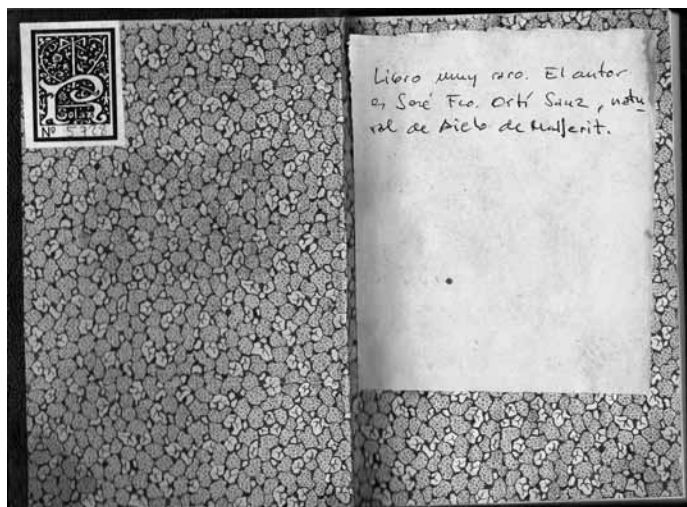 Nº 5728
Libro muy raro. El autor
es José Fco. Ortí Sanz, natu
ral de Aielo de Malferit.